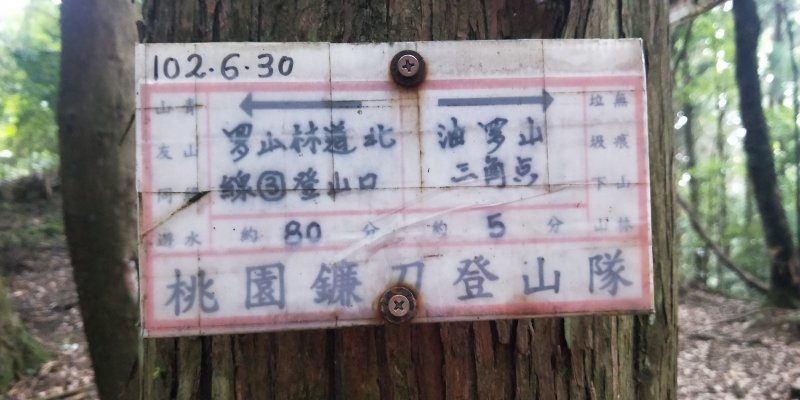 102.6.30
青山綠水
山友同遊
罗山林道北
線③登山口
約 80 分
油罗山
三角点
約 5 分
無痕山林
垃圾下山
桃園鐮刀登山隊